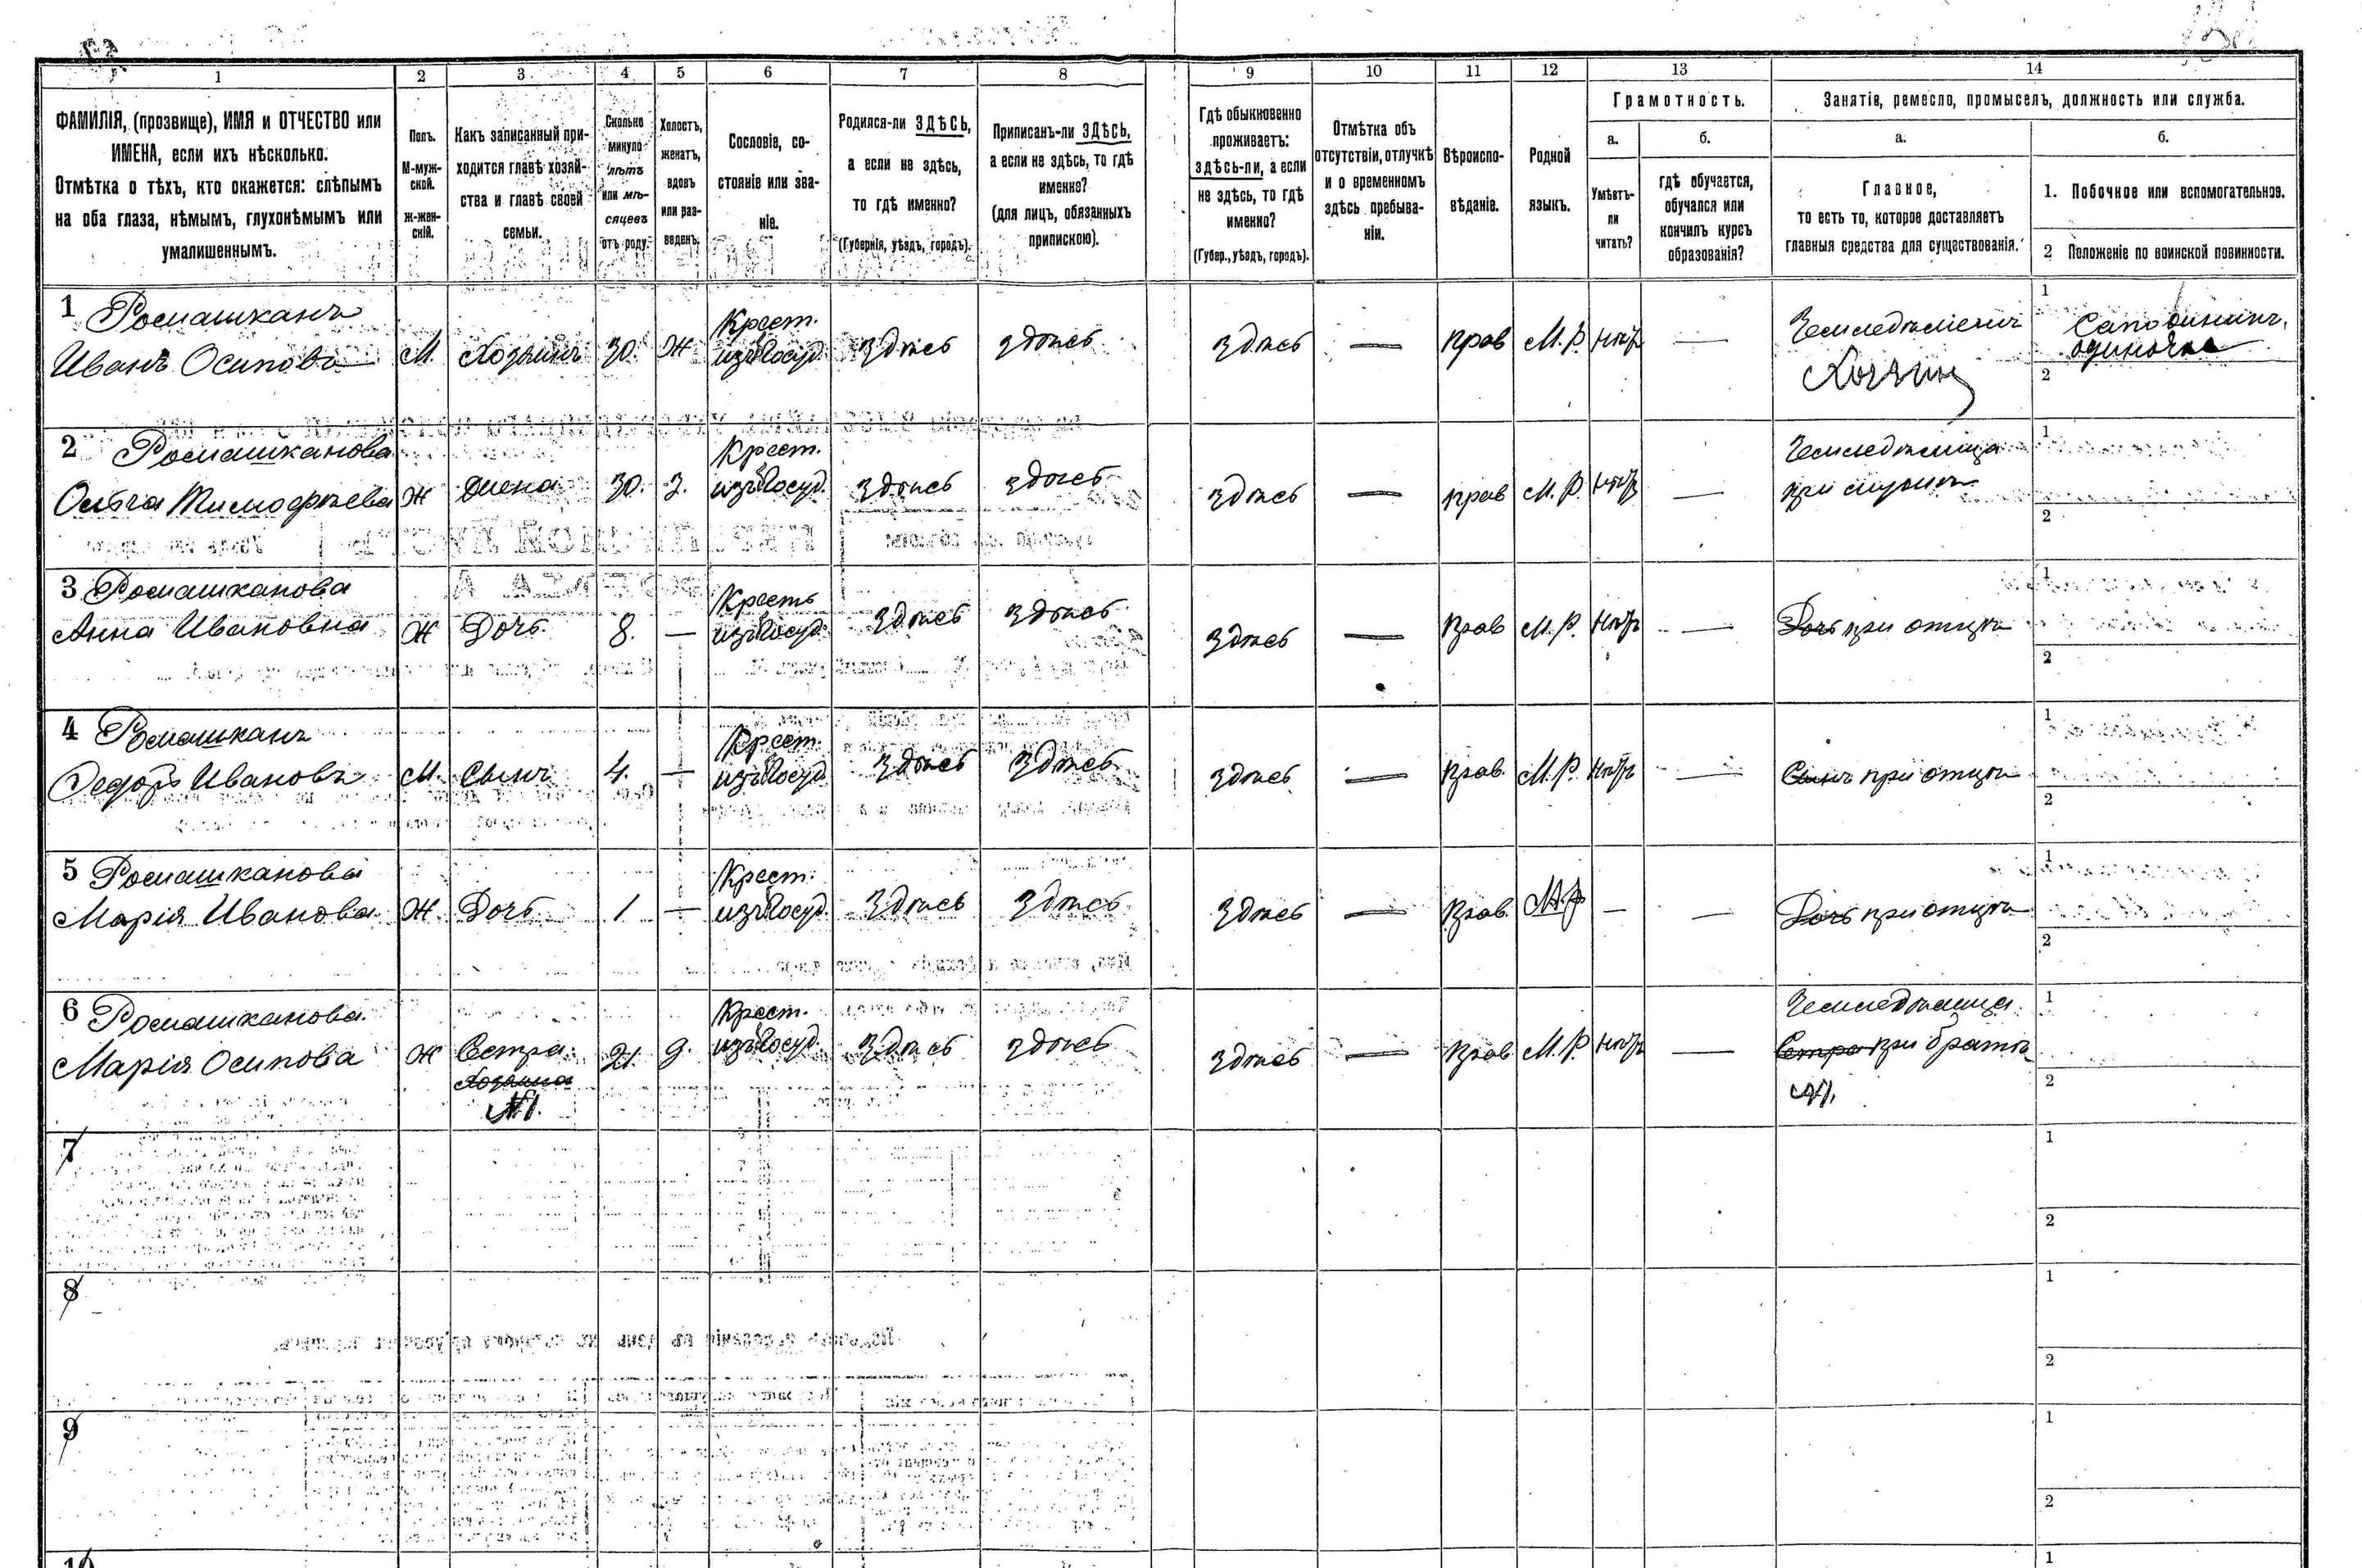 1 2 3 4 5 6 7 8 9 10 11 12 13 14
ФАМИЛІЯ, (прозвище), ИМЯ и ОТЧЕСТВО или
ИМЕНА, если ихъ нѣсколько.
Отмѣтка о тѣхъ, кто окажется: слѣпымъ
на оба глаза, нѣмымъ, глухонѣмымъ или
умалишеннымъ.
Полъ.
М-муж-
ской.
Ж-жен-
скій.
Какъ записанный при-
ходится главѣ хозяй-
ства и главѣ своей
семьи.
Сколько
минуло
лѣтъ
или мѣ-
сяцевъ
отъ роду.
Холостъ,
женатъ,
вдовъ
или раз-
веденъ.
Сословіе, со-
стояніе или зва-
ніе.
Родился-ли ЗДѢСЬ,
а если не здѣсь,
то гдѣ именно?
(Губернія, уѣздъ, городъ).
Приписанъ-ли ЗДѢСЬ,
а если не здѣсь, то гдѣ
именно?
(для лицъ, обязанныхъ
припискою).
Гдѣ обыкновенно
проживаетъ:
здѣсь-ли, а если
не здѣсь, то гдѣ
именно?
(Губер., уѣздъ, городъ).
Отмѣтка объ
отсутствіи, отлучкѣ
и о временномъ
здѣсь пребыва-
ніи.
Вѣроиспо-
вѣданіе.
Родной
языкъ.
Грамотность.
а.
Умѣетъ-
ли
читать?
б.
гдѣ обучается,
обучался или
кончилъ курсъ
образованія?
Занятіе, ремесло, промыселъ, должность или служба.
а.
Главное,
то есть то, которое доставляетъ
главныя средства для существованія.
б.
1. Побочное или вспомогательное.
2 Положеніе по воинской повинности.
1 Ромашканъ
Иванъ Осиповъ
М.
Хозяинъ
30.
Ж
Крест.
изъ Госуд.
Здѣсь
Здѣсь
Здѣсь
—
Прав
М. Р.
Нѣтъ
—
Земледѣлецъ
Хозяин
1
одиночка
2
2 Ромашканова
Ольга Тимофѣева
Ж
Жена
30.
З.
Крест.
изъ Госуд.
Здѣсь
Здѣсь
Здѣсь
—
Прав
М. Р.
Нѣтъ
—
Земледѣлица
при мужѣ
1
2
3 Ромашканова
Анна Ивановна
Ж
Дочь
8.
—
Крестъ
изъ Госуд.
Здѣсь
Здѣсь
Здѣсь
—
Прав
М. Р.
Нѣтъ
—
Дочь при отцѣ
1
2
4 Ромашканъ
Федоръ Ивановъ
М.
Сынъ
4.
—
Крест.
изъ Госуд.
Здѣсь
Здѣсь
Здѣсь
—
Прав.
М. Р.
Нѣтъ
—
Сынъ при отцѣ
1
2
5 Ромашканова
Марія Иванова
Ж.
Дочь
1
—
Крест.
изъ Госуд.
Здѣсь
Здѣсь
Здѣсь
—
Прав.
М. Р
—
—
Дочь при отцѣ
1
2
6 Ромашканова
Марія Осипова
Ж
Сестра
Хозяина
№1.
21.
Крест.
изъ Госуд.
Здѣсь
Здѣсь
Здѣсь
—
Прав
М. Р
Нѣтъ
—
Земледѣлица
Сестра при братѣ
№1.
1
2
7
1
2
8
1
2
9
1
2
10
1